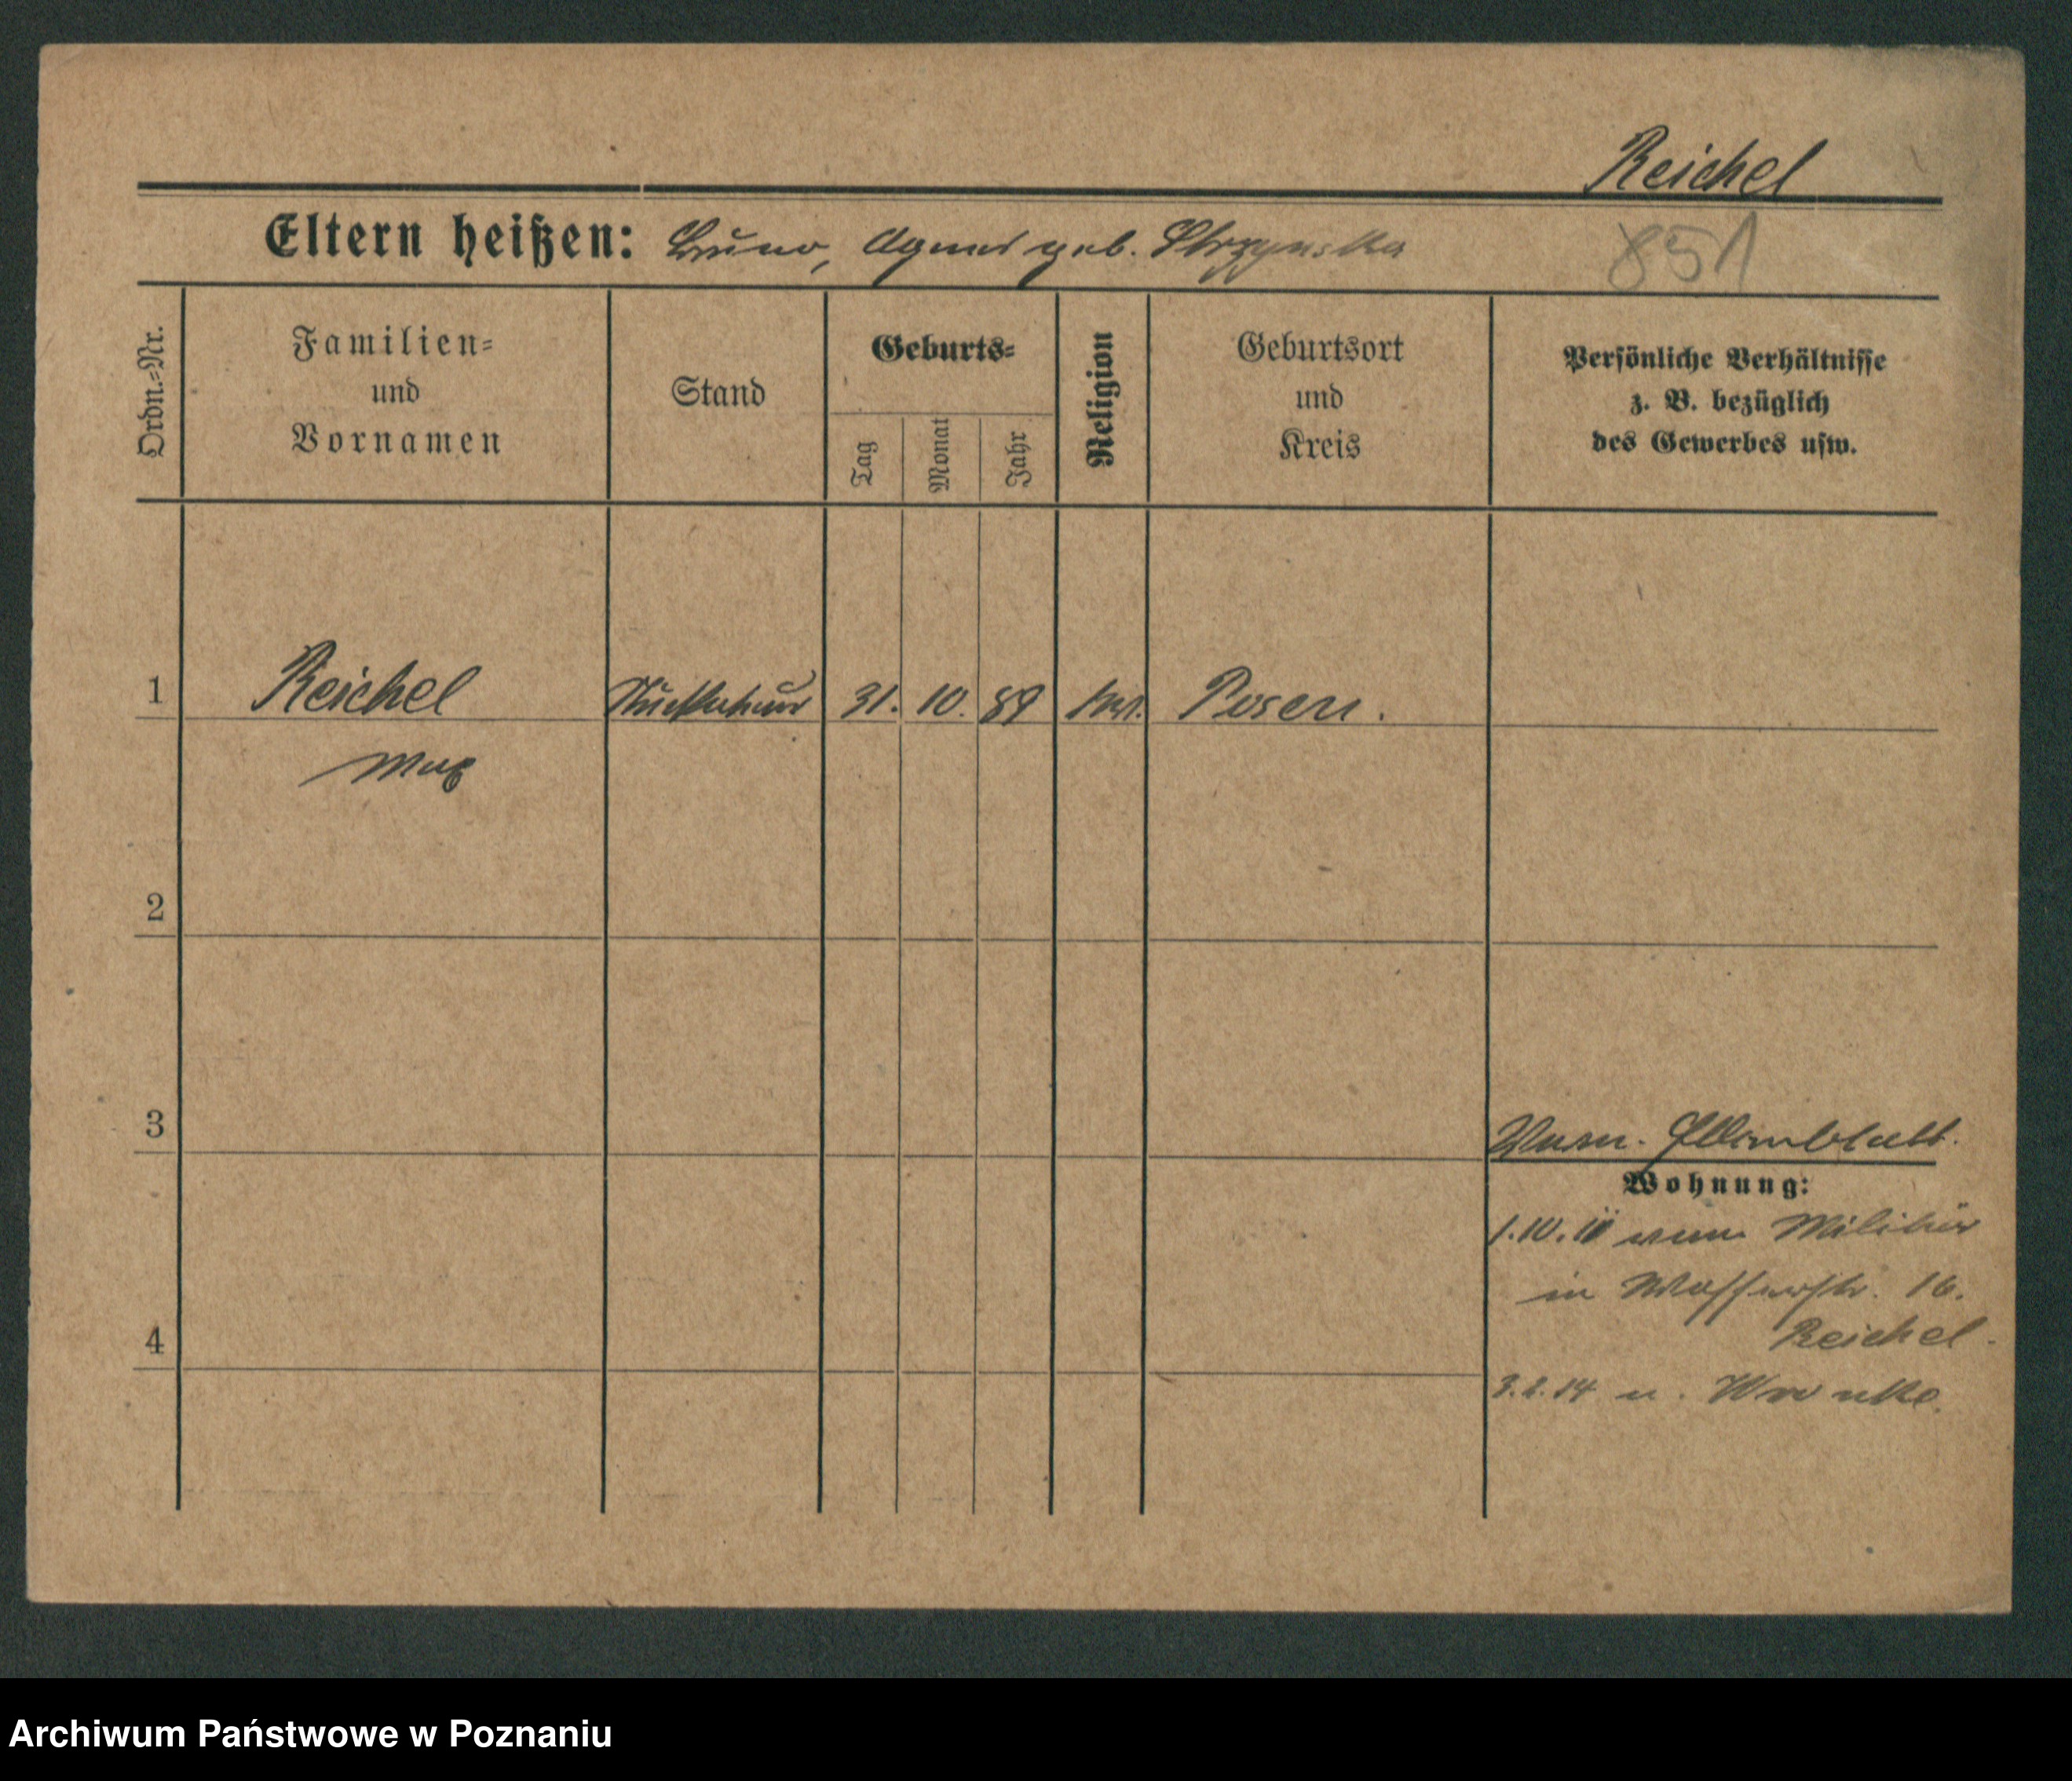 Reichel
Eltern heißen: Bruno, Agnes geb.
851
Ordn.=Nr.
Familien=
und
Vornamen
Stand
Geburts=
Tag
Monat
Jahr
Religion
Geburtsort
und
Kreis
Persönliche Verhältnisse
z. B. bezüglich
des Gewerbes usw.
1 Reichel 31. 10. 89 Posen.
Max
2
3
Wohnung:
1.10. vom Militär
in Wasserstr. 16.
Reichel.
4
3.2.14 n. Wronke.
Archiwum Państwowe w Poznaniu